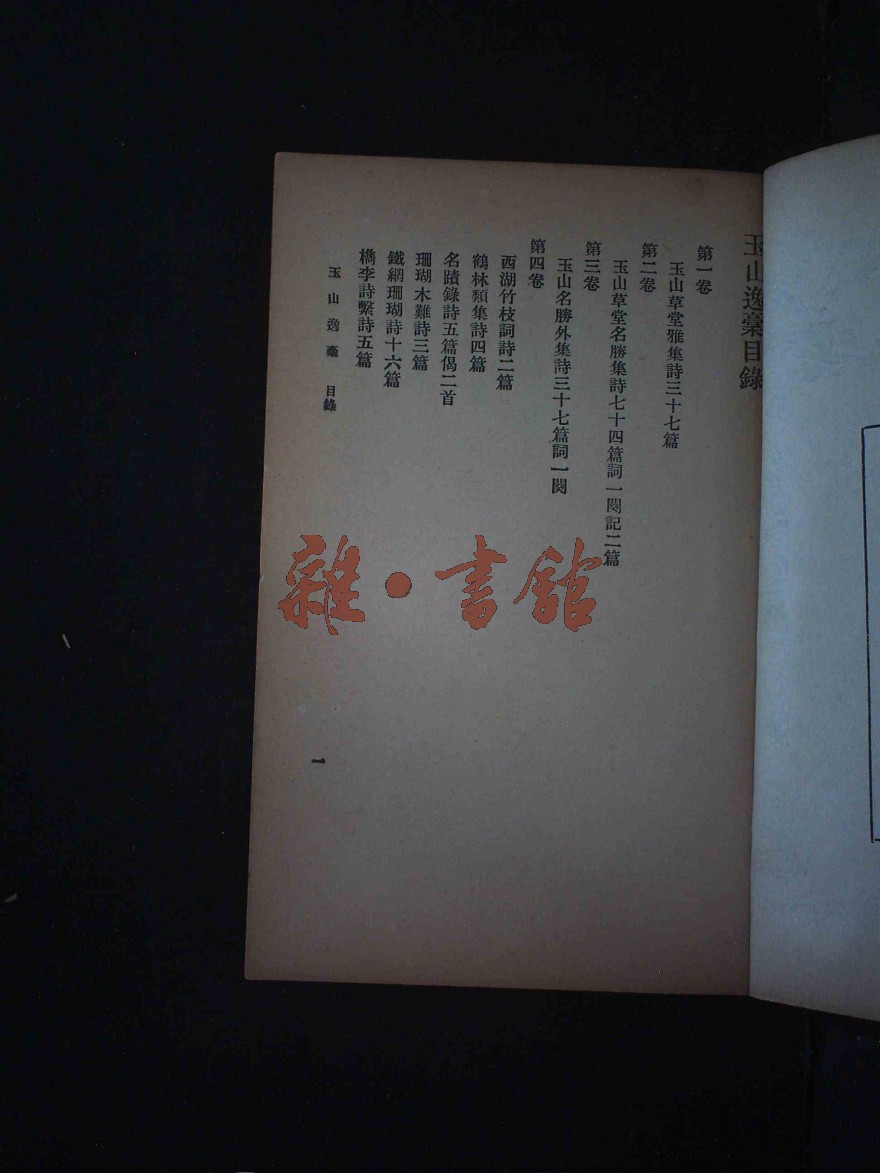 玉山逸稾目錄
第一卷
玉山草堂雅集詩三十七篇
第二卷
玉山草堂名勝集詩七十四篇詞一闋記二篇
第三卷
玉山名勝外集詩三十七篇詞一闋
第四卷
西湖竹枝詞詩二篇
鶴林類集詩四篇
名蹟錄詩五篇偈二首
珊瑚木難詩三篇
鐵網珊瑚詩十六篇
檇李詩繫詩五篇
玉山逸稾 目錄
一
雜·書館